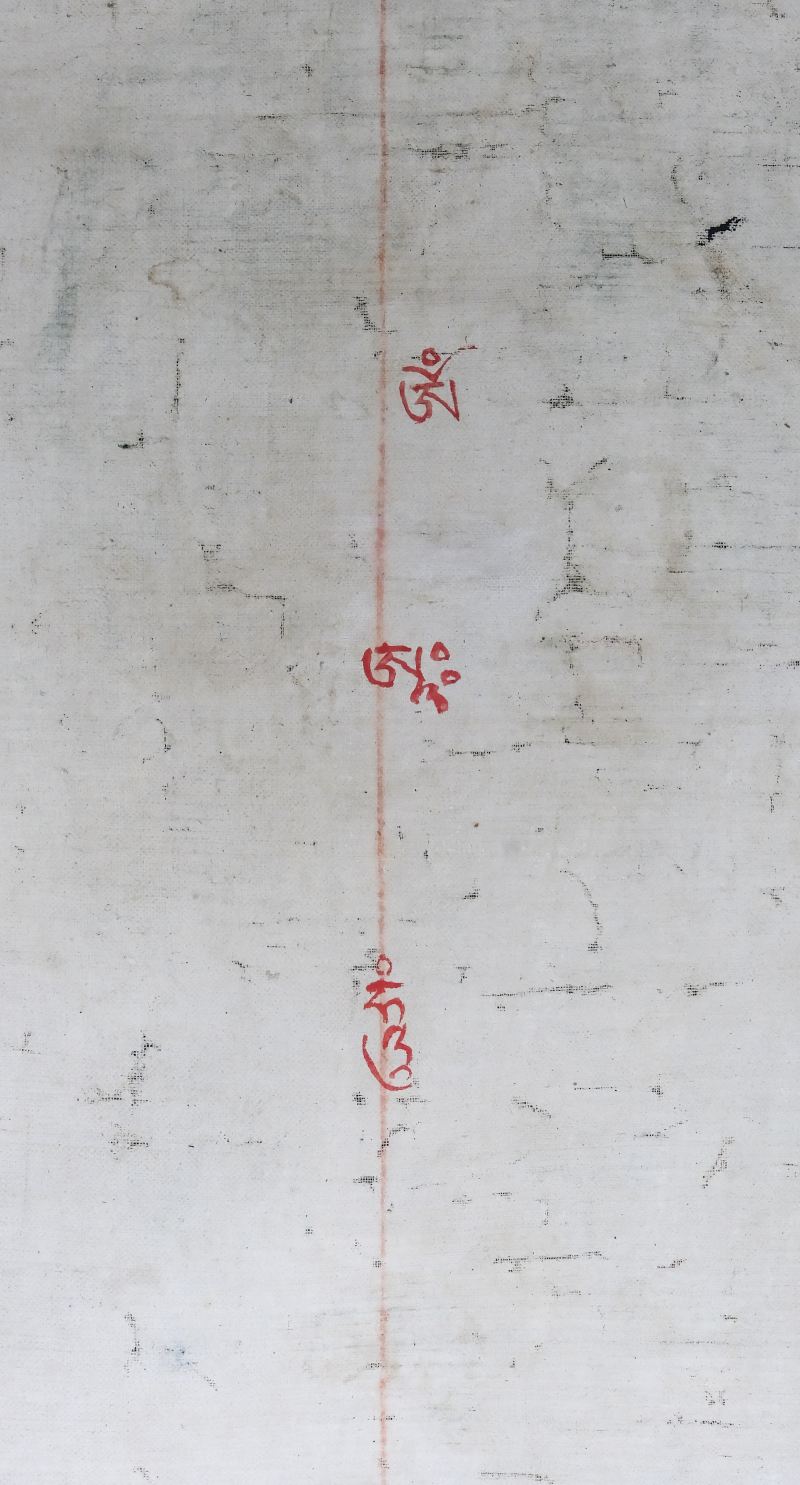 ཨོཾ
ཨཱཿ
ཧཱུཾ